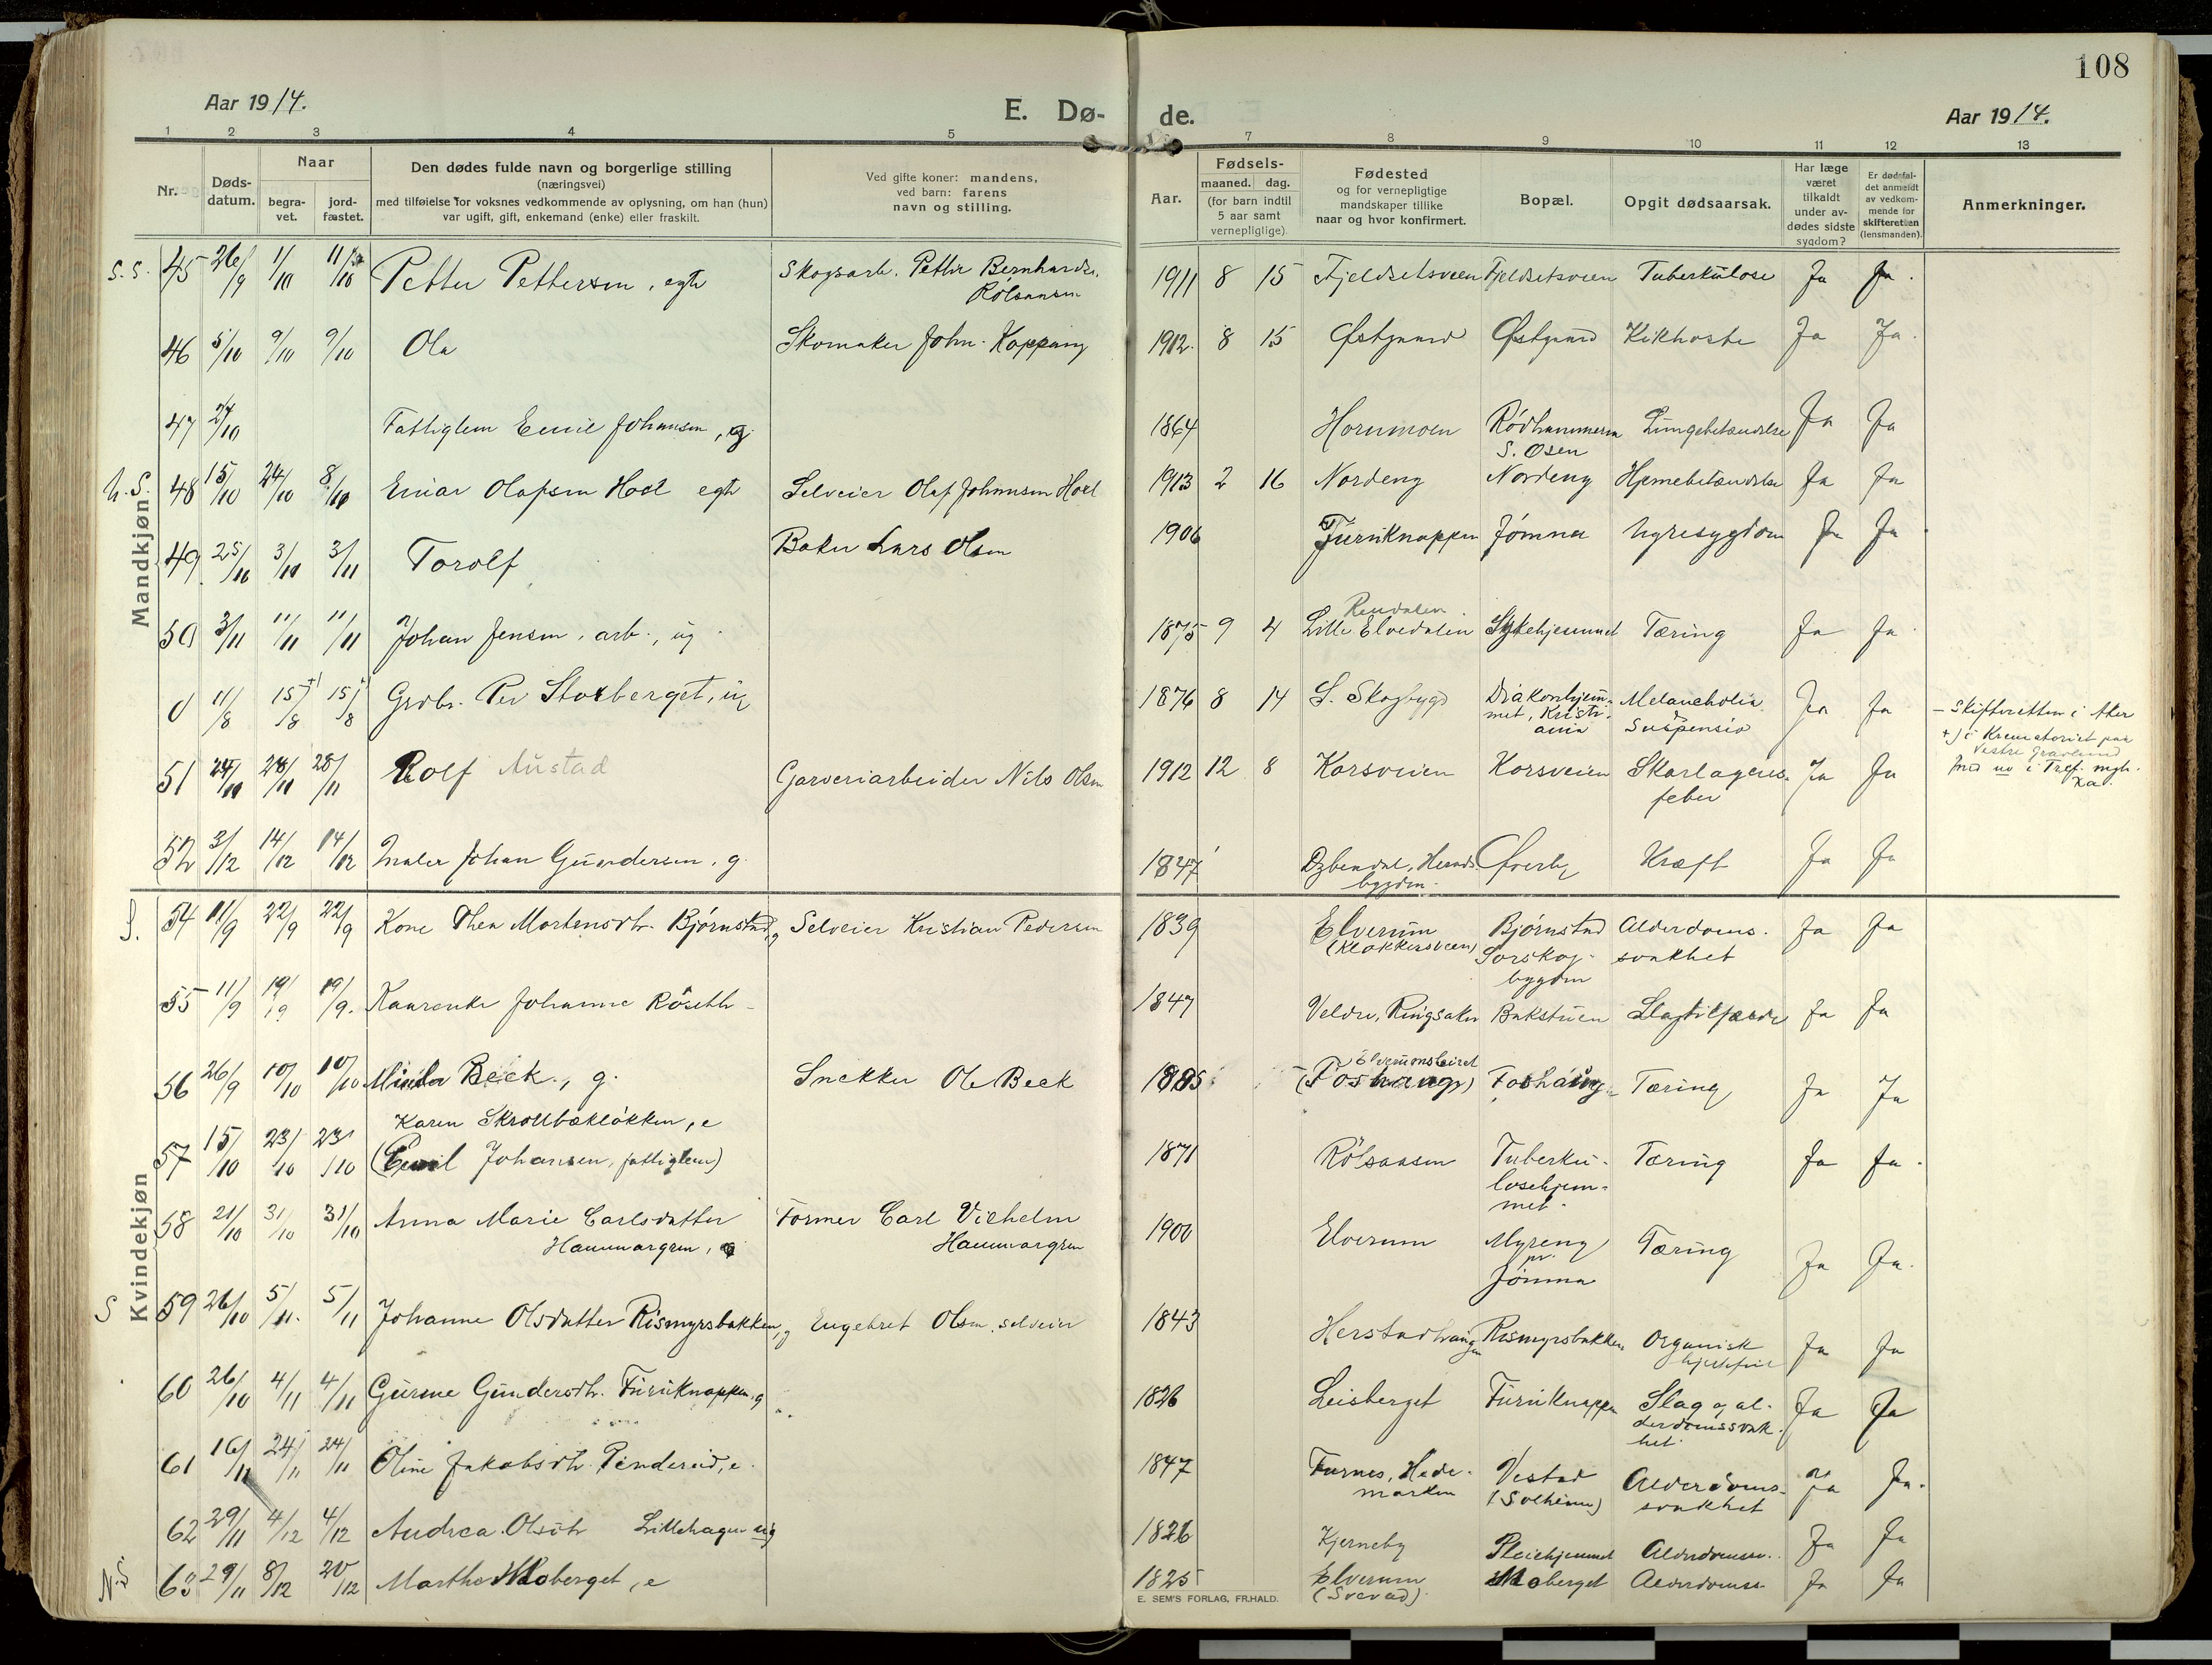 108
Aar 1914.
E. Dø-
de.
Aar 1914.
1 2 3 4 5 7 8 9 10 11 12 13
Nr.
Døds-
datum.
Naar
begra-
vet.
jord-
fæstet.
Den dødes fulde navn og borgerlige stilling
(næringsvei)
med tilføielse for voksnes vedkommende av oplysning, om han (hun)
var ugift, gift, enkemand (enke) eller fraskilt.
Ved gifte koner: mandens,
ved barn: farens
navn og stilling.
Aar.
Fødsels-
maaned. dag.
(for barn indtil
5 aar samt
vernepligtige).
Fødested
og for vernepligtige
mandskaper tillike
naar og hvor konfirmert.
Bopæl.
Opgit dødsaarsak.
Har læge
været
tilkaldt
under av-
dødes sidste
sygdom?
Er dødsfal-
det anmeldt
av vedkom-
mende for
skifteretten
(lensmanden).
Anmerkninger.
Mandkjøn
S.S. 45 26/9 1/10 11/10 Petter Pettersen, egte Skogsarb. Petter Bernhardsn. 1911 8 15 Fjeldsetsveen Fjeldsetsveen Tuberkulose Ja Ja.
Rølsaasen
46 5/10 9/10 9/10 Ola Skomaker John Koppang 1912. 8 15 Østgaard Østgaard Kikhoste Ja Ja.
47 27/10 Fattiglem Emil Johansen, g. 1864 Hornmoen Rødhammeren Lungebetændelse Ja Ja
S. Osen
N.S. 48 15/10 24/10 8/10 Einar Olafsen Hoel egte Selveier Olaf Johannsen Hoel 1913 2 16 Nordeng Nordeng Hjernebetændelse Ja Ja
49 25/10 3/10 3/11 Torolf Baker Lars Olsen 1906 Furuknappen Jømna Nyresygdom Ja Ja
50 3/11 11/11 11/11 Johan Jensen, arb., ug 1875 9 4 Rendalen
Lille Elvedalen Sykehjemmet Tæring Ja Ja
0 11/8 15/8 +) 15/8 Grdbr. Per Storberget, ug 1876 8 14 S. Skogbygd Diakonhjem- Melancholia Ja Ja - Skifteretten i Aker
met, Kristi- Suspensio +) i Krematoriet paa
ania Vestre gravlund
51 24/10 28/11 28/11 Rolf Austad Garveriarbeider Nils Olsen 1912 12 8 Korsveien Korsveien Skarlagens- Ja Ja
feber
52 3/12 14/12 14/12 Maler Johan Gundersen, g. 1847 Dybendal, Hernes- Øverby Kræft Ja Ja
bygden.
Kvindekjøn
S. 54 11/9 22/9 22/9 Kone Thea Mortensdtr. Bjørnstad, g Selveier Kristian Pedersen 1839 Elverum Bjørnstad Alderdoms- Ja Ja
(Klokkersveen) Sørskog- svakhet
bygden
55 11/9 19/9 19/9. Kaarenke Johanne Röseth 1847 Veldre, Ringsaker Bakstuen Slagtilfælde Ja Ja
56 26/9 10/10 10/10 Minda Beck, g. Snekker Ole Beck 1885 Elverumsleiret
(Foshaug) Foshaug Tæring Ja Ja
57 15/10 23/10 23/10 Karen Skrollbækløkken, e
(Emil Johansen, fattiglem) 1871 Rølsaasen Tuberku- Tæring Ja Ja.
losehjem-
met.
58 21/10 31/10 31/10 Anna Marie Carlsdatter Former Carl Vilhelm 1900 Elverum Myreng Tæring Ja Ja.
Hammargren, Hammargren pr.
Jømna
S 59 26/10 5/11. 5/11 Johanne Olsdatter Rismyrsbakken, g Engebret Olsen, selveier 1843 Herstadhaugen Rismyrsbakken Organisk Ja Ja
hjertefeil
60 26/10 4/11 4/11 Gurine Gundersdtr. Furuknappen, g 1826 Leisberget Furuknappen Slag og al- Ja Ja
derdomssvak-
het
61 16/11 24/11 24/11 Oline Jakobsdtr. Pindereid, e. 1847 Furnes, Hede- Vestad Alderdoms- Ja Ja.
marken (Solheim) svakhet
62 29/11 4/12 4/12 Andrea Olsdtr Lillehagen ug 1826 Kjerneby Pleiehjemmet Alderdomssv. Ja Ja
N.S 63 29/11 8/12 20/12 Marthe Moberget, e 1825 Elverum Moberget Alderdomss. Ja Ja
(Svevad)
E. SEM'S FORLAG, FR.HALD.